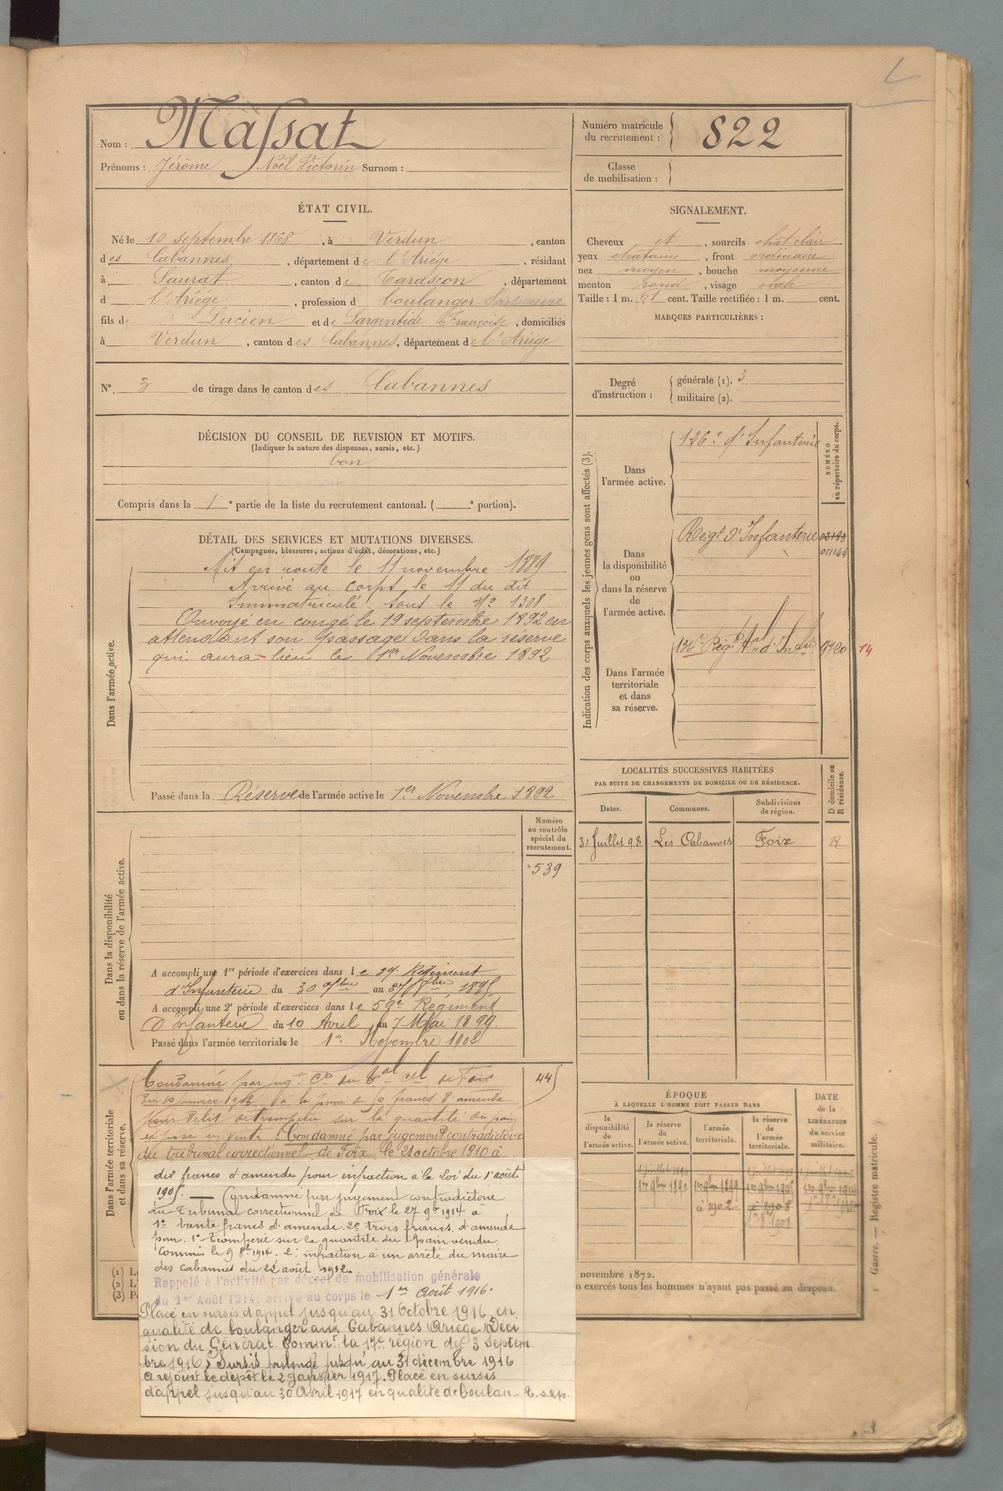 Nom : Massat
Prénoms : Jérôme Noël Victorin Surnom :
Numéro matricule du recrutement : 822
Classe de mobilisation :
ÉTAT CIVIL.
Né le 10 septembre 1868, à Verdun, canton
des Cabannes, département de l'Ariège, résidant
à Saurat, canton de Tarascon, département
d l'Ariège, profession d boulanger
fils de Lucien et de Largentide Françoise, domiciliés
à Verdun, canton des Cabannes, département de l'Ariège
N° 3 de tirage dans le canton des Cabannes
SIGNALEMENT.
Cheveux et, sourcils chat clair
yeux chatains, front ordinaire
nez moyen, bouche moyenne
menton rond, visage ovale
Taille : 1 m. 61 cent. Taille rectifiée : 1 m. cent.
MARQUES PARTICULIÈRES :
Degré d'instruction : générale (1). 3
militaire (2).
DÉCISION DU CONSEIL DE REVISION ET MOTIFS.
(Indiquer la nature des dispenses, sursis, etc.)
bon
Compris dans la 1e partie de la liste du recrutement cantonal. ( e portion).
DÉTAIL DES SERVICES ET MUTATIONS DIVERSES.
(Campagnes, blessures, actions d'éclat, décorations, etc.)
Dans l'armée active.
Mis en route le 11 novembre 1889
Arrivé au corps le 11 du dit
Immatriculé sous le N° 1308
Envoyé en congé le 19 septembre 1892 en
attendant son passage dans la réserve
qui aura lieu le 1er Novembre 1892
Passé dans la Réserve de l'armée active le 1er Novembre 1892
Indication des corps auxquels les jeunes gens sont affectés (3).
NUMÉRO au répertoire du corps.
Dans l'armée active.
126e d'Infanterie
Dans la disponibilité ou dans la réserve de l'armée active.
Régt d'Infanterie
Dans l'armée territoriale et dans sa réserve.
134e Régt
14
LOCALITÉS SUCCESSIVES HABITÉES
PAR SUITE DE CHANGEMENTS DE DOMICILE OU DE RÉSIDENCE.
D domicile ou R résidence.
Dates. Communes. Subdivisions de région.
31 Juillet 98 Les Cabannes Foix R
Numéro au contrôle spécial du recrutement.
539
Dans la disponibilité ou dans la réserve de l'armée active.
A accompli une 1re période d'exercices dans le Régiment
d'Infanterie du 30 au 1895
A accompli une 2e période d'exercices dans le 59e Régiment
d'Infanterie du 10 Avril au 7 Mai 1899
Passé dans l'armée territoriale le 1er Novembre 1902
Dans l'armée territoriale et dans sa réserve.
Condamné par jugt cre du de Foix
à la peine de francs d'amende
pour délit de tromperie sur la quantité de pain
exposé en vente. Condamné par jugement contradictoire
du tribunal correctionnel de Foix le 21 octobre 1910 à
dix francs d'amende pour infraction à la loi du 1er août
1905. — Condamné par jugement contradictoire
du Tribunal correctionnel de Foix le 27 9bre 1914 à
1° trente francs d'amende 2° trois francs d'amende
pour 1° tromperie sur la quantité du pain vendu
commis le 9 8bre 1914. 2° infraction à un arrêté du maire
des Cabannes du 22 août 1912.
Rappelé à l'activité par décret de mobilisation générale
du 1er Août 1914, arrivé au corps le 1er août 1916.
Placé en sursis d'appel jusqu'au 31 Octobre 1916 en
qualité de boulanger aux Cabannes Ariège (Déci
sion du Général Commt la 17e région du 3 septem
bre 1916) Sursis prolongé jusqu'au 31 décembre 1916
A rejoint le dépôt le 2 Janvier 1917. Placé en sursis
d'appel jusqu'au 30 Avril 1917 en qualité de boulan- T.s.v.p.
ÉPOQUE
À LAQUELLE L'HOMME DOIT PASSER DANS
la disponibilité de l'armée active.
la réserve de l'armée active.
l'armée territoriale.
la réserve de l'armée territoriale.
DATE de la LIBÉRATION du service militaire.
novembre 1872.
n exercés tous les hommes n'ayant pas passé au drapeau.
Guerre. — Registre matricule.